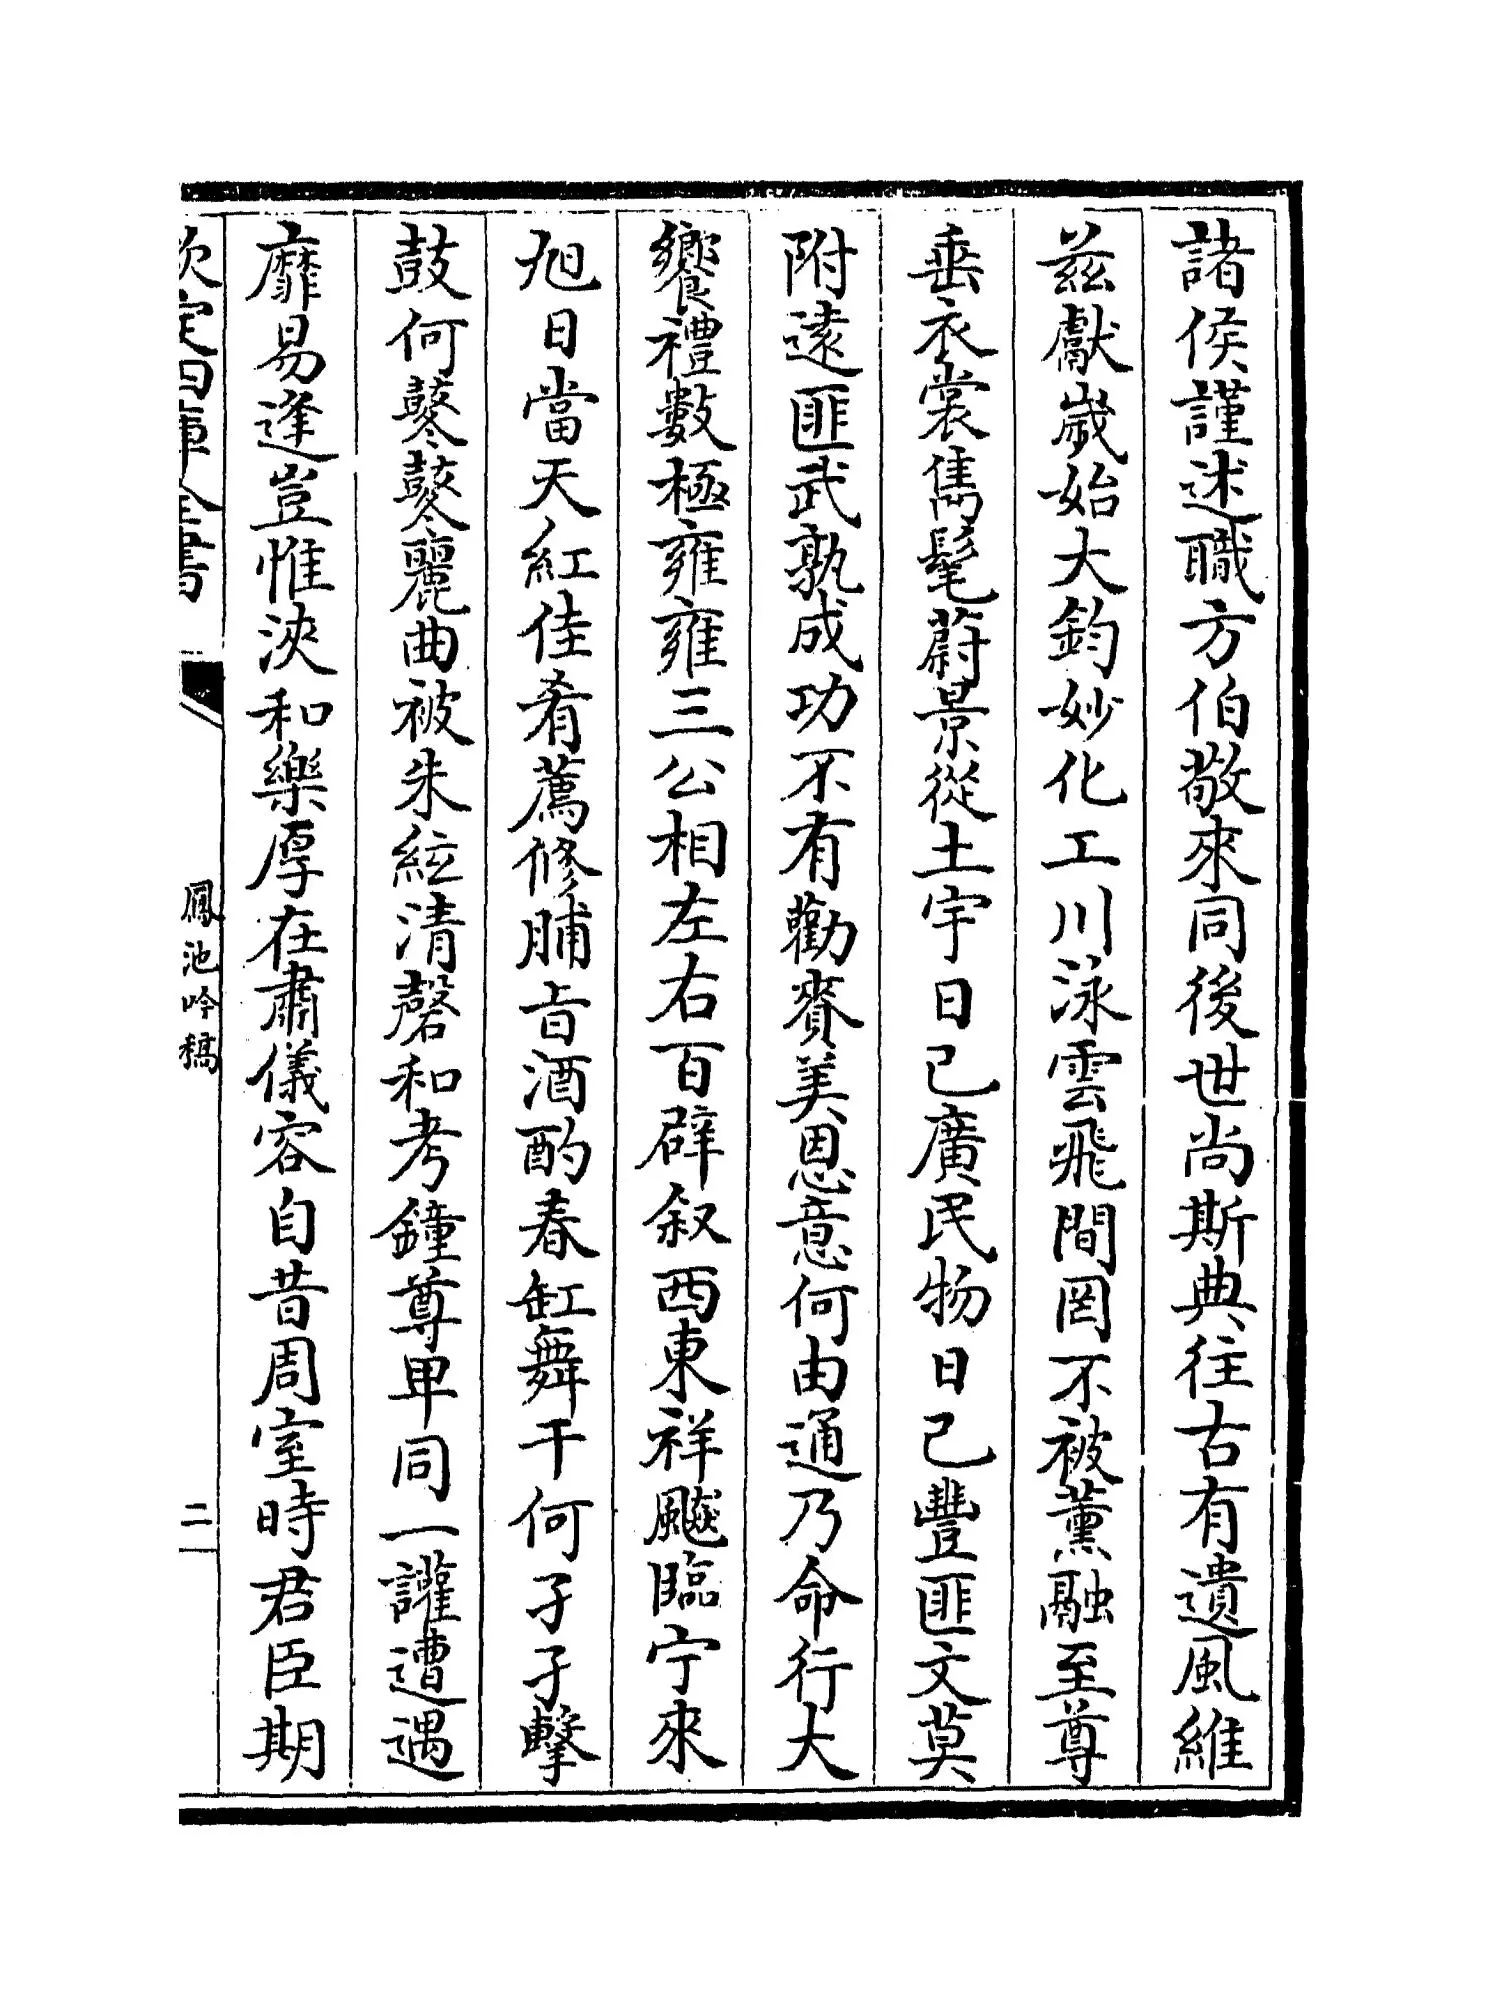 諸侯謹述職方伯敬來同後世尚斯典往古有遺風維
茲獻嵗始大鈞妙化工川泳雲飛間罔不被薰融至尊
垂衣裳雋髦蔚景從土宇日已廣民物日已豐匪文莫
附逺匪武孰成功不有勸賚美恩意何由通乃命行大
饗禮數極雍雍三公相左右百辟叙西東祥飈臨宁來
旭日當天紅佳肴薦修脯旨酒酌春缸舞干何孑孑擊
鼓何鼕鼕麗曲被朱絃清磬和考鐘尊卑同一讙遭遇
靡易逢豈惟浹和樂厚在肅儀容自昔周室時君臣期
欽定四庫全書
鳳池吟稿
二